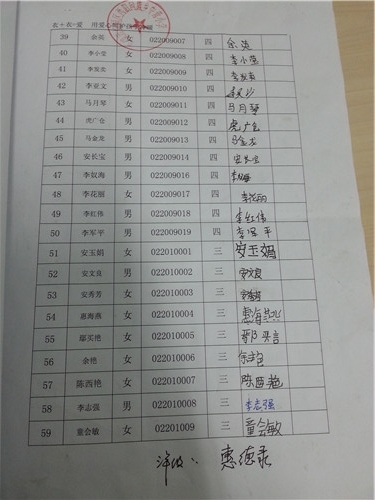 衣+衣=爱 用爱心呵护
39 余英 女 022009007 四 余英
40 李小莹 女 022009008 四 李小莹
41 李发农 女 022009009 四 李发农
42 李亚文 男 022009010 四
43 马月琴 女 022009011 四 马月琴
44 虎广仓 男 022009012 四 虎广仓
45 马金龙 男 022009013 四 马金龙
46 安长宝 男 022009014 四 安长宝
47 李奴海 男 022009016 四
48 李花丽 女 022009017 四 李花丽
49 李红伟 男 022009018 四 李红伟
50 李军平 男 022009019 四 李军平
51 安玉娟 女 022010001 三 安玉娟
52 安文良 男 022010002 三 安文良
53 安秀芳 女 022010003 三
54 惠海燕 女 022010004 三 惠海燕
55 鄢买艳 女 022010005 三
56 余艳 女 022010006 三 余艳
57 陈西艳 女 022010007 三 陈西艳
58 李志强 男 022010008 三 李志强
59 童会敏 女 02201009 三 童会敏
惠德录